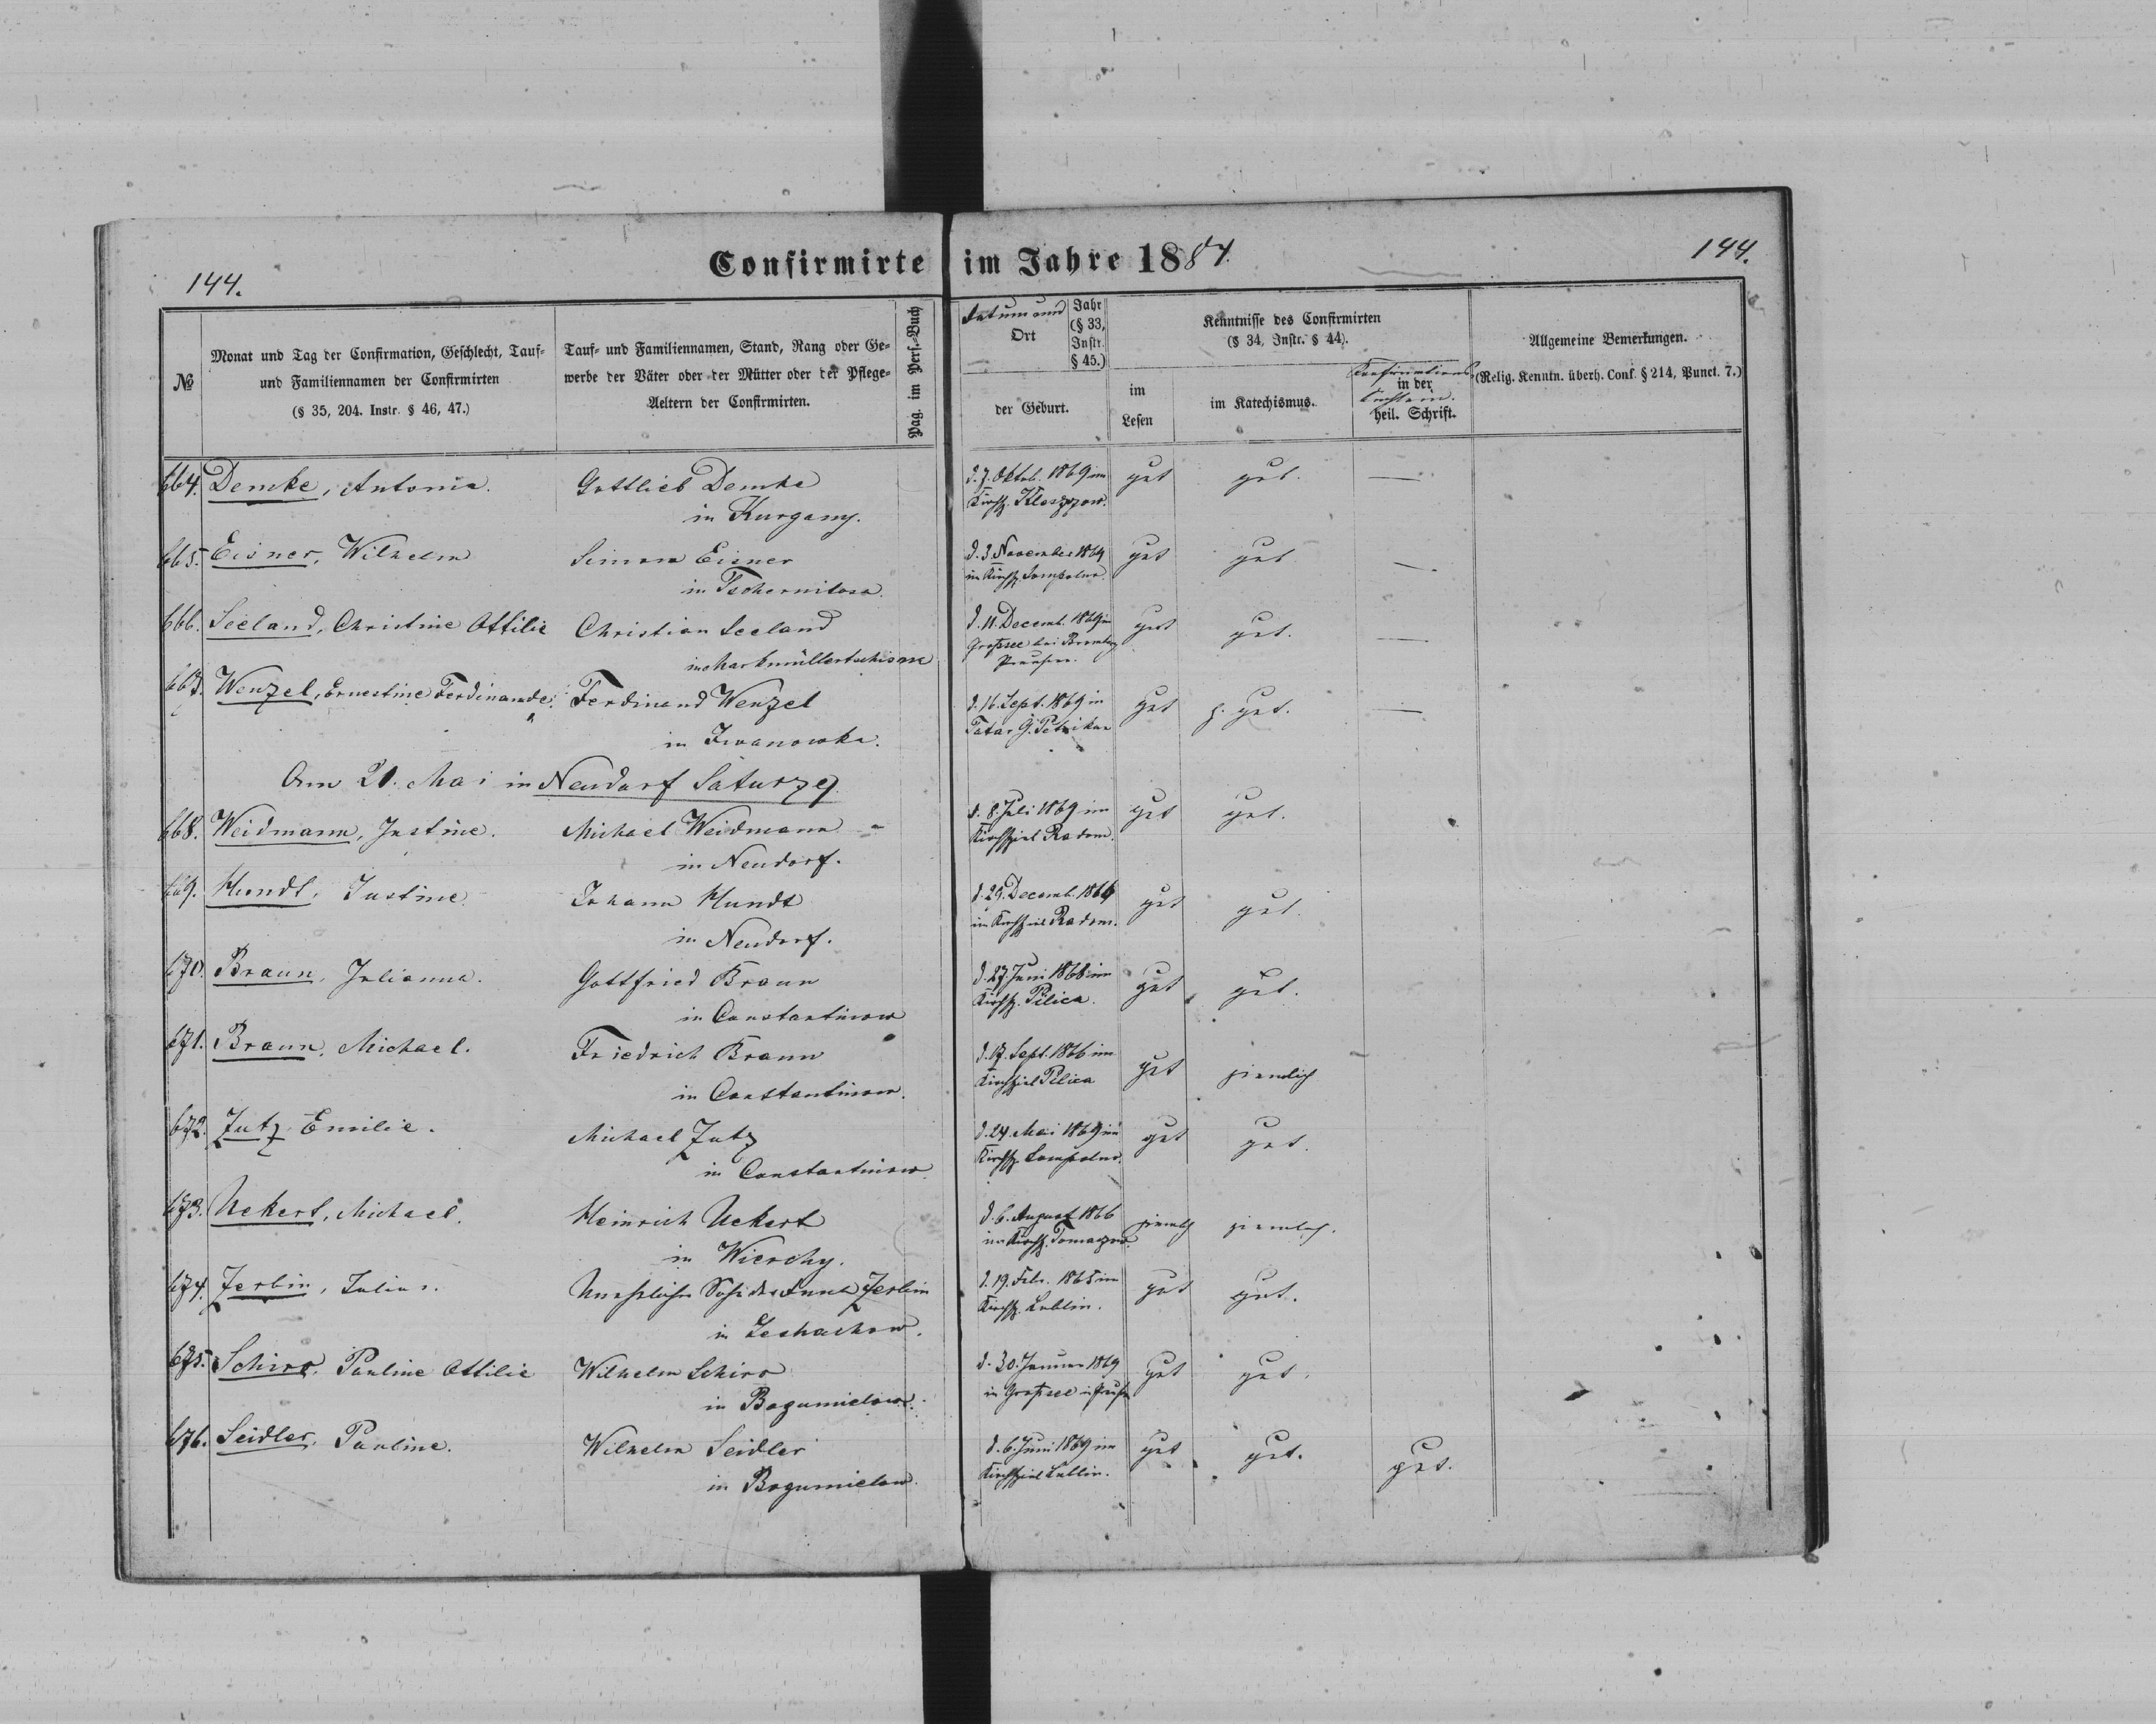 144.
Confirmirte im Jahre 1884.
144.
№
Monat und Tag der Confirmation, Geschlecht, Tauf-
und Familiennamen der Confirmirten
(§ 35, 204. Instr. § 46, 47.)
Tauf- und Familiennamen, Stand, Rang oder Ge-
werbe der Väter oder der Mütter oder der Pflege-
Aeltern der Confirmirten.
Pag. im Pers.-Buch
Datum und
Ort
Jahr
(§ 33,
Instr.
§ 45.)
der Geburt.
Kenntnisse des Confirmirten
(§ 34, Instr. § 44).
im
Lesen
im Katechismus.
Confirmations
in der
heil. Schrift.
Allgemeine Bemerkungen.
(Relig. Kenntn. überh. Conf. § 214, Punct. 7.)
664. Demke, Antonie. Gottlieb Demke d. 7. Oktob. 1869 im gut gut. —
in Kurgany. Kirchsp.
665. Eisner, Wilhelm Simon Eisner d. 3. November 1869 gut gut —
in Tschernilosa. im Kirchsp. Sompolno.
666. Seeland, Christine Ottilie Christian Seeland d. 11. Decemb. 1869 in gut gut. —
in Grossee bei Bromberg
Preussen.
667. Wenzel, Ernestine Ferdinande. Ferdinand Wenzel d. 16. Sept. 1869 in gut z. gut. —
in Iwanowka. Tatar G. Petrikau
Am 21. Mai in Neudorf Saturzy
668. Weidmann, Justine. Michael Weidmann d. 8. Juli 1869 im gut gut.
in Neudorf. Kirchspiel Radom.
669. Hundt, Justine. Johann Hundt d. 29. Decemb. 1866 gut gut.
in Neudorf. im Kirchspiel Radom.
670. Braun, Julianna. Gottfried Braun d. 27. Juni 1868 im gut gut.
in Constantinow Kirchsp. Pilica.
671. Braun, Michael. Friedrich Braun d. 17. Sept. 1866 im gut ziemlich
in Constantinow. Kirchspiel Pilica
672. Jutz Emilie. Michael Jutz d. 24. Mai 1869 im gut gut.
in Constantinow. Kirchsp. Sompolno.
673. Uckert, Michael. Heinrich Uckert d. 6. August 1866 ziemlich ziemlich.
in Wierchy. im Kirchsp.
674. Zerbin, Julius. Unehelicher Sohn der Anna Zerbin d. 19. Febr. 1865 im gut gut.
in Kirchsp. Lublin.
675. Schirr, Pauline Ottilie Wilhelm Schirr d. 30. Januar 1869 gut gut.
in Bogumielow. in Grossee in Preussen
676. Seidler, Pauline. Wilhelm Seidler d. 6. Juni 1869 im gut gut. gut.
in Bogumielow. Kirchspiel Lublin.